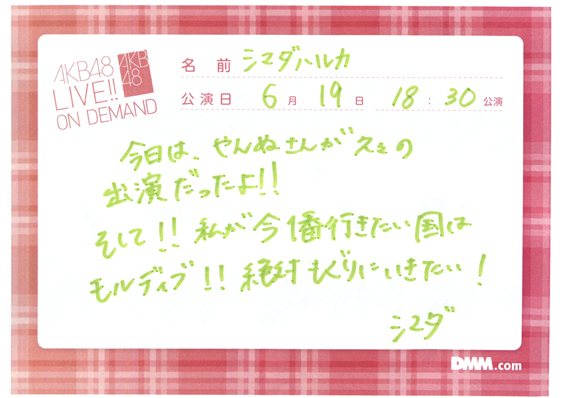 AKB48
LIVE!!
ON DEMAND
AKB
48
名前 シマダハルカ
公演日 6月19日 18:30公演
今日は、やんぬさんが久々の
出演だったよ!!
そして!! 私が今1番行きたい国は
モルディブ!! 絶対もぐりにいきたい!
シマダ
DMM.com